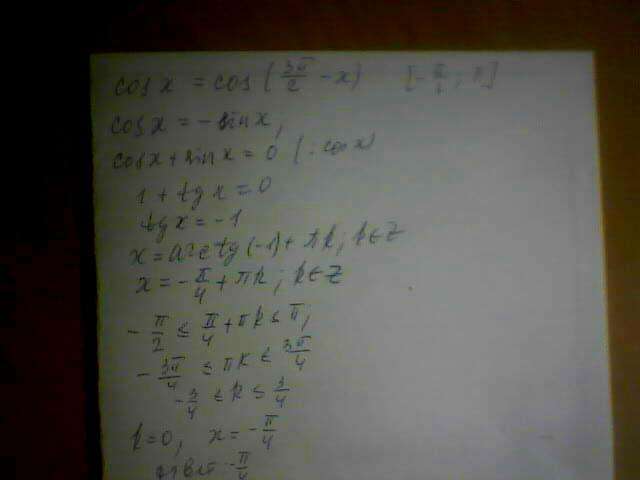 cos x = cos (3π/2 - x) [-π/2; π]
cos x = - sin x;
cos x + sin x = 0 (: cos x)
1 + tg x = 0
tg x = -1
x = arctg (-1) + πk; k ∈ Z
x = -π/4 + πk; k ∈ Z
-π/2 ≤ π/4 + πk ≤ π;
-3π/4 ≤ πk ≤ 3π/4
-3/4 ≤ k ≤ 3/4
k=0, x = -π/4
ответ: -π/4